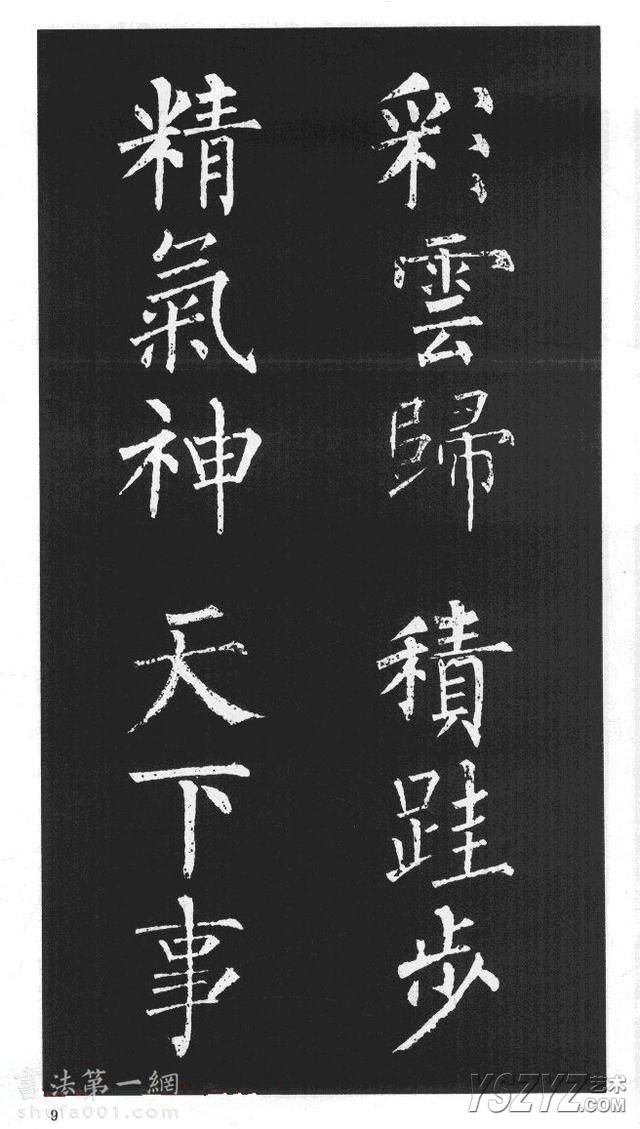 彩雲歸 積跬步
精氣神 天下事
書法第一網
shufa001.com
9
YSZYZ艺术.COM